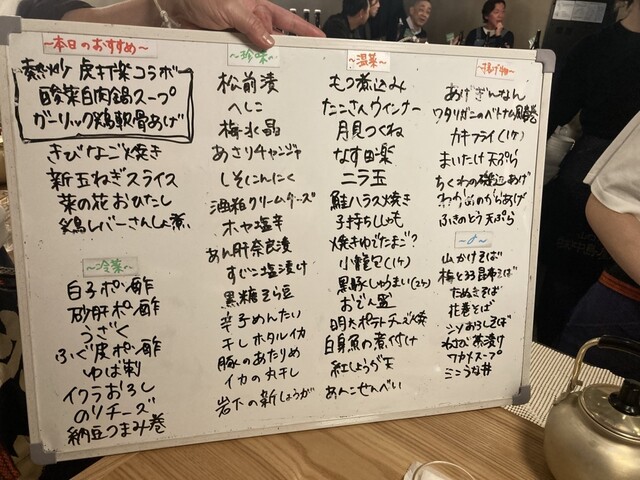 ~本日のおすすめ~
熱炒 虎打楽コラボ
酸菜白肉鍋スープ
ガーリック鶏軟骨あげ
きびなご焼き
新玉ねぎスライス
菜の花おひたし
鶏レバーさんしょ煮
~冷菜~
白子ポン酢
砂肝ポン酢
うざく
ふぐ皮ポン酢
ゆば刺
イクラおろし
のりチーズ
納豆つまみ巻
~珍味~
松前漬
へしこ
梅水晶
あさりチャンジャ
しそにんにく
酒粕クリームチーズ
ホヤ塩辛
あん肝奈良漬
すじこ塩漬け
黒糖そら豆
辛子めんたい
干しホタルイカ
豚のあたりめ
イカの丸干し
岩下の新しょうが
~温菜~
もつ煮込み
たこさんウィンナー
月見つくね
なす田楽
ニラ玉
鮭ハラス焼き
子持ちししゃも
焼きゆでたまご?
小籠包(1ヶ)
黒豚しゅうまい(2ヶ)
おでん盛
明太ポテトチーズ焼
白身魚の煮付け
紅しょうが天
あんこせんべい
~揚げ物~
あげぎんなん
ワタリガニのベトナム風春巻
カキフライ(1ヶ)
まいたけ天ぷら
ちくわの磯辺あげ
わかめのからあげ
ふきのとう天ぷら
~〆~
山かけそば
梅とろろ昆布そば
たぬきそば
花巻そば
シソおろしそば
わさび茶漬け
ワカメスープ
ミニうな丼